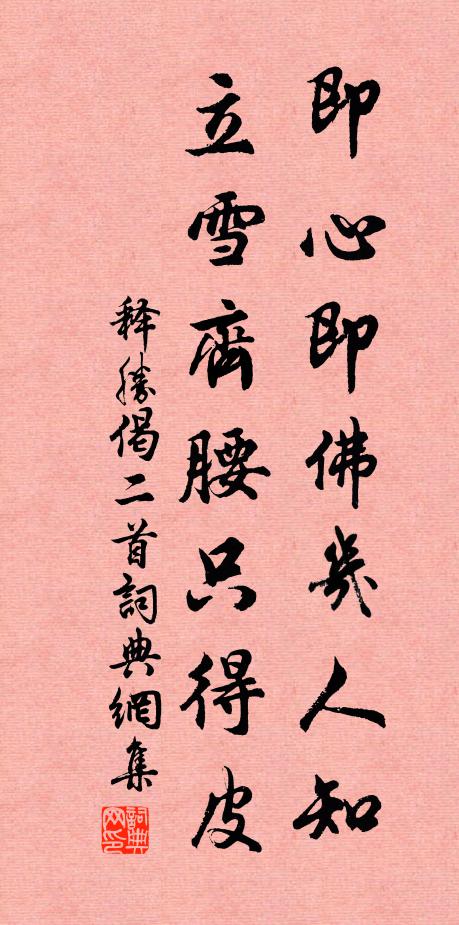 即心即佛幾人知
立雪齊腰只得皮
释勝偈二首詞典網集
詞典网印